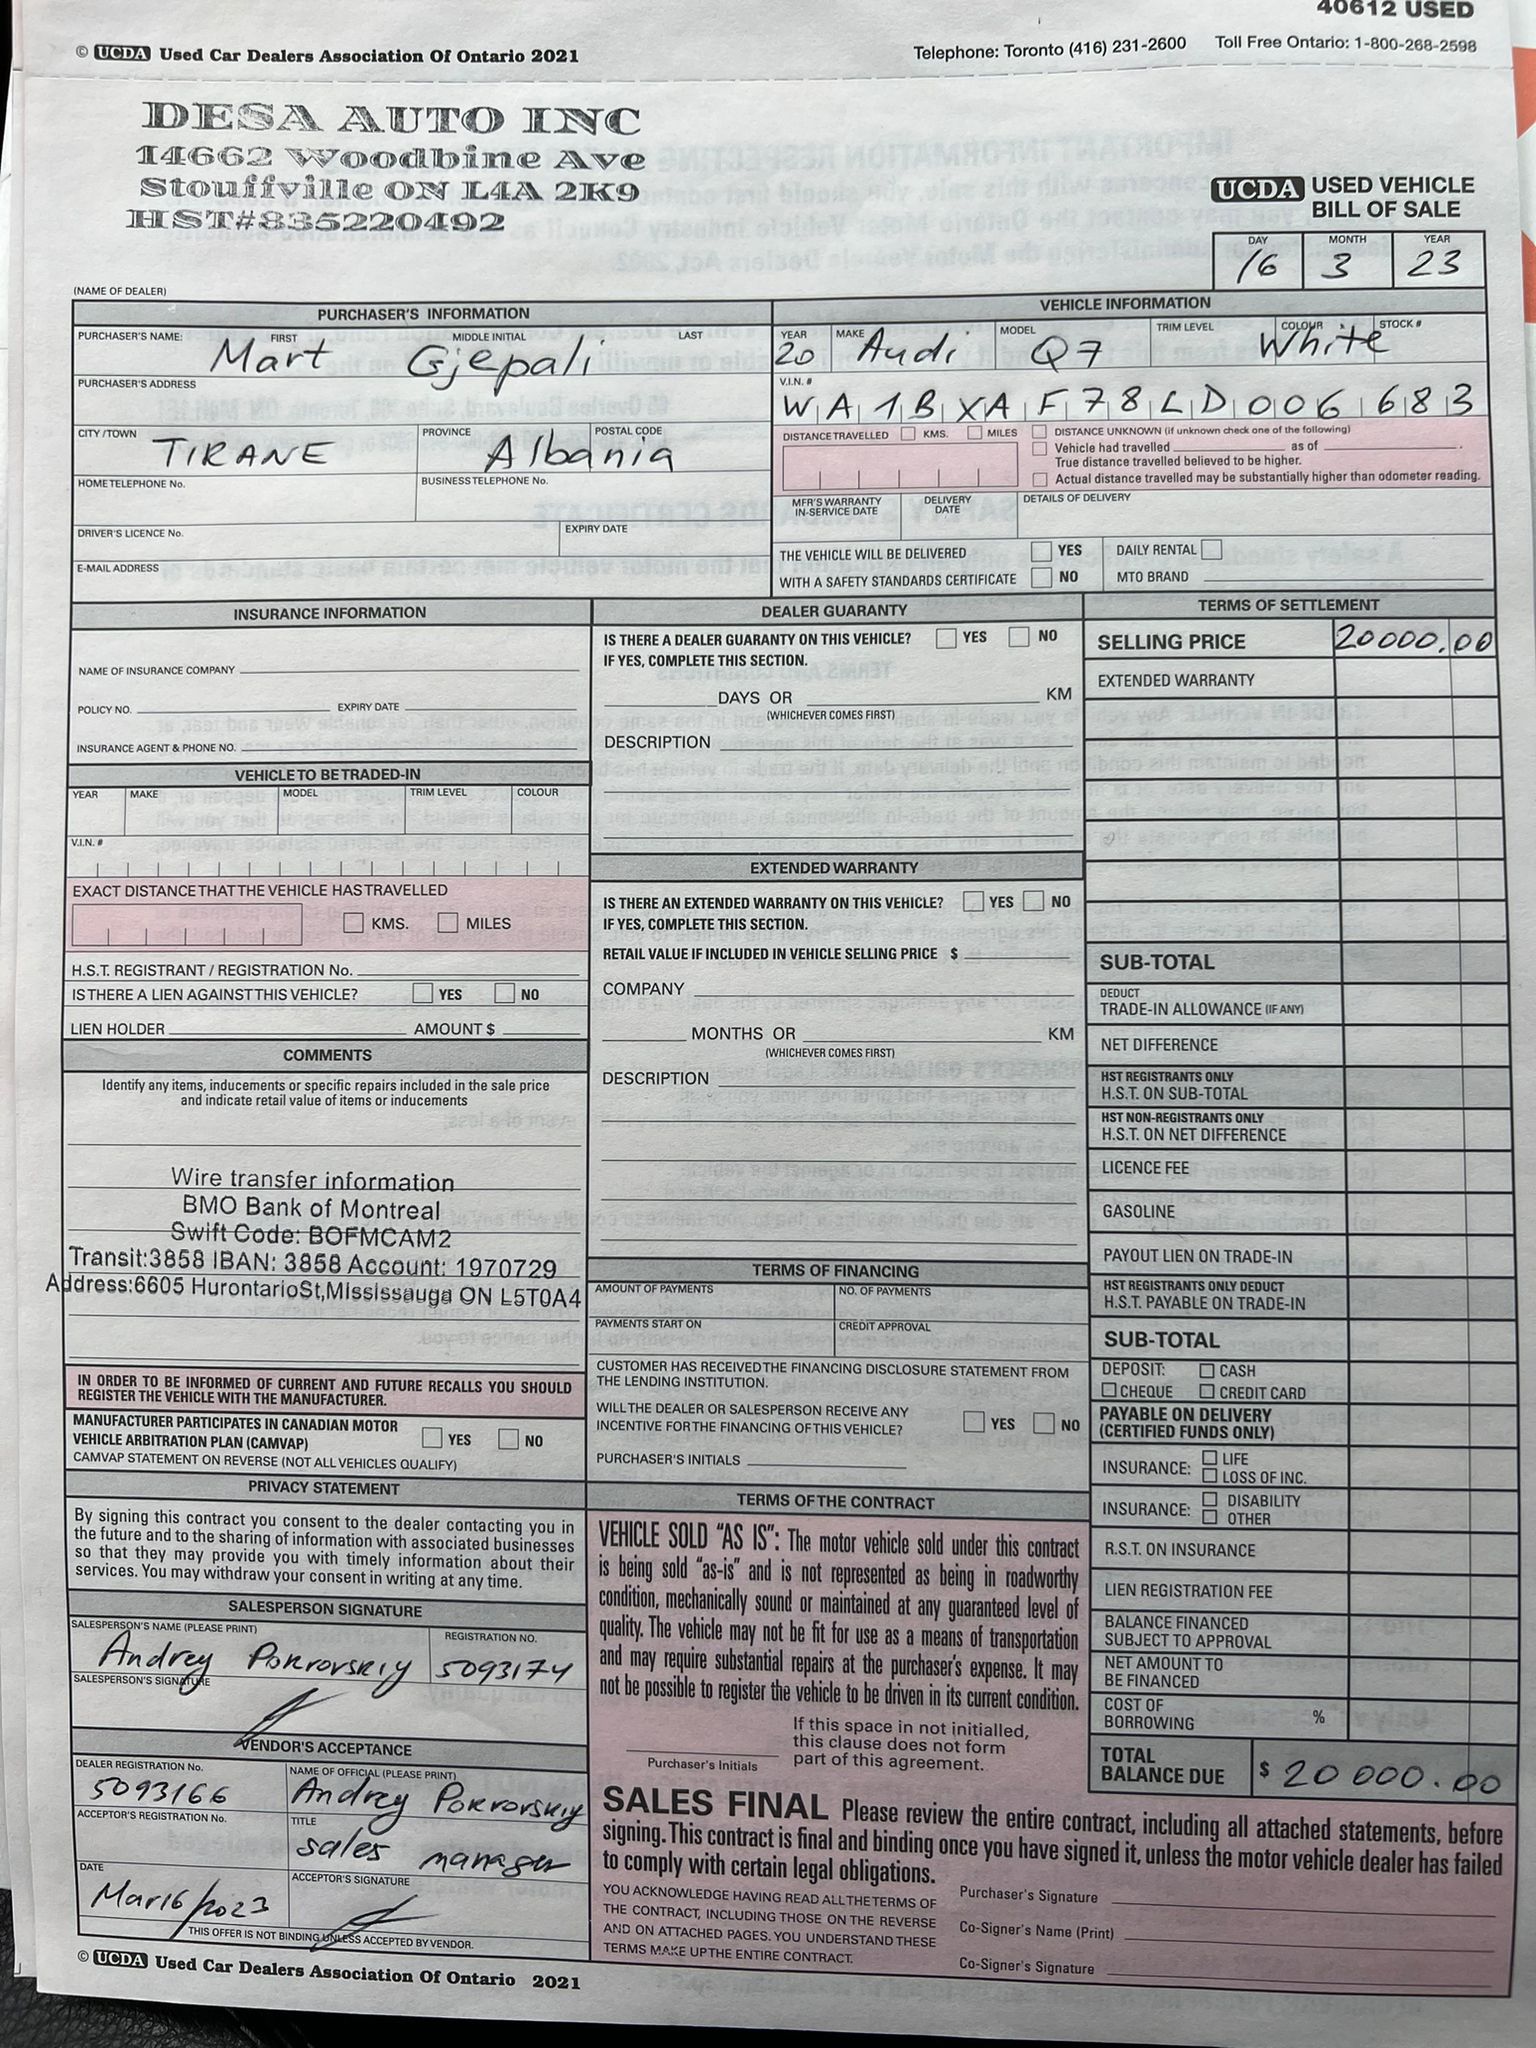 40612 USED
© UCDA Used Car Dealers Association Of Ontario 2021
Telephone: Toronto (416) 231-2600 Toll Free Ontario: 1-800-268-2598
DESA AUTO INC
14662 Woodbine Ave
Stouffville ON L4A 2K9
HST#835220492
UCDA USED VEHICLE
BILL OF SALE
DAY MONTH YEAR
16 3 23
(NAME OF DEALER)
PURCHASER'S INFORMATION
PURCHASER'S NAME: FIRST MIDDLE INITIAL LAST
Mart Gjepali
PURCHASER'S ADDRESS
CITY / TOWN PROVINCE POSTAL CODE
TIRANE Albania
HOME TELEPHONE No. BUSINESS TELEPHONE No.
DRIVER'S LICENCE No. EXPIRY DATE
E-MAIL ADDRESS
VEHICLE INFORMATION
YEAR MAKE MODEL TRIM LEVEL COLOUR STOCK #
20 Audi Q7 White
V.I.N. #
WA1BXAF78LD006683
DISTANCE TRAVELLED KMS. MILES
DISTANCE UNKNOWN (if unknown check one of the following)
Vehicle had travelled as of .
True distance travelled believed to be higher.
Actual distance travelled may be substantially higher than odometer reading.
MFR'S WARRANTY IN-SERVICE DATE DELIVERY DATE DETAILS OF DELIVERY
THE VEHICLE WILL BE DELIVERED YES DAILY RENTAL
WITH A SAFETY STANDARDS CERTIFICATE NO MTO BRAND
INSURANCE INFORMATION
NAME OF INSURANCE COMPANY
POLICY NO. EXPIRY DATE
INSURANCE AGENT & PHONE NO.
VEHICLE TO BE TRADED-IN
YEAR MAKE MODEL TRIM LEVEL COLOUR
V.I.N. #
EXACT DISTANCE THAT THE VEHICLE HAS TRAVELLED
KMS. MILES
H.S.T. REGISTRANT / REGISTRATION No.
IS THERE A LIEN AGAINST THIS VEHICLE? YES NO
LIEN HOLDER AMOUNT $
COMMENTS
Identify any items, inducements or specific repairs included in the sale price
and indicate retail value of items or inducements
Wire transfer information
BMO Bank of Montreal
Swift Code: BOFMCAM2
Transit:3858 IBAN: 3858 Account: 1970729
Address:6605 HurontarioSt,Mississauga ON L5T0A4
IN ORDER TO BE INFORMED OF CURRENT AND FUTURE RECALLS YOU SHOULD
REGISTER THE VEHICLE WITH THE MANUFACTURER.
MANUFACTURER PARTICIPATES IN CANADIAN MOTOR
VEHICLE ARBITRATION PLAN (CAMVAP) YES NO
CAMVAP STATEMENT ON REVERSE (NOT ALL VEHICLES QUALIFY)
PRIVACY STATEMENT
By signing this contract you consent to the dealer contacting you in
the future and to the sharing of information with associated businesses
so that they may provide you with timely information about their
services. You may withdraw your consent in writing at any time.
SALESPERSON SIGNATURE
SALESPERSON'S NAME (PLEASE PRINT) REGISTRATION NO.
Andrey Pokrovskiy 5093174
SALESPERSON'S SIGNATURE
VENDOR'S ACCEPTANCE
DEALER REGISTRATION No. NAME OF OFFICIAL (PLEASE PRINT)
5093166 Andrey Pokrovskiy
ACCEPTOR'S REGISTRATION No. TITLE
sales manager
DATE ACCEPTOR'S SIGNATURE
Mar16/2023
THIS OFFER IS NOT BINDING UNLESS ACCEPTED BY VENDOR.
DEALER GUARANTY
IS THERE A DEALER GUARANTY ON THIS VEHICLE? YES NO
IF YES, COMPLETE THIS SECTION.
DAYS OR KM
(WHICHEVER COMES FIRST)
DESCRIPTION
EXTENDED WARRANTY
IS THERE AN EXTENDED WARRANTY ON THIS VEHICLE? YES NO
IF YES, COMPLETE THIS SECTION.
RETAIL VALUE IF INCLUDED IN VEHICLE SELLING PRICE $
COMPANY
MONTHS OR KM
(WHICHEVER COMES FIRST)
DESCRIPTION
TERMS OF FINANCING
AMOUNT OF PAYMENTS NO. OF PAYMENTS
PAYMENTS START ON CREDIT APPROVAL
CUSTOMER HAS RECEIVED THE FINANCING DISCLOSURE STATEMENT FROM
THE LENDING INSTITUTION.
WILL THE DEALER OR SALESPERSON RECEIVE ANY
INCENTIVE FOR THE FINANCING OF THIS VEHICLE? YES NO
PURCHASER'S INITIALS
TERMS OF THE CONTRACT
VEHICLE SOLD "AS IS": The motor vehicle sold under this contract
is being sold "as-is" and is not represented as being in roadworthy
condition, mechanically sound or maintained at any guaranteed level of
quality. The vehicle may not be fit for use as a means of transportation
and may require substantial repairs at the purchaser's expense. It may
not be possible to register the vehicle to be driven in its current condition.
Purchaser's Initials
If this space in not initialled,
this clause does not form
part of this agreement.
TERMS OF SETTLEMENT
SELLING PRICE 20000.00
EXTENDED WARRANTY
SUB-TOTAL
DEDUCT
TRADE-IN ALLOWANCE (IF ANY)
NET DIFFERENCE
HST REGISTRANTS ONLY
H.S.T. ON SUB-TOTAL
HST NON-REGISTRANTS ONLY
H.S.T. ON NET DIFFERENCE
LICENCE FEE
GASOLINE
PAYOUT LIEN ON TRADE-IN
HST REGISTRANTS ONLY DEDUCT
H.S.T. PAYABLE ON TRADE-IN
SUB-TOTAL
DEPOSIT: CASH
CHEQUE CREDIT CARD
PAYABLE ON DELIVERY
(CERTIFIED FUNDS ONLY)
INSURANCE: LIFE
LOSS OF INC.
INSURANCE: DISABILITY
OTHER
R.S.T. ON INSURANCE
LIEN REGISTRATION FEE
BALANCE FINANCED
SUBJECT TO APPROVAL
NET AMOUNT TO
BE FINANCED
COST OF
BORROWING %
TOTAL
BALANCE DUE $ 20 000.00
SALES FINAL Please review the entire contract, including all attached statements, before
signing. This contract is final and binding once you have signed it, unless the motor vehicle dealer has failed
to comply with certain legal obligations.
YOU ACKNOWLEDGE HAVING READ ALL THE TERMS OF
THE CONTRACT, INCLUDING THOSE ON THE REVERSE
AND ON ATTACHED PAGES. YOU UNDERSTAND THESE
TERMS MAKE UP THE ENTIRE CONTRACT.
Purchaser's Signature
Co-Signer's Name (Print)
Co-Signer's Signature
© UCDA Used Car Dealers Association Of Ontario 2021